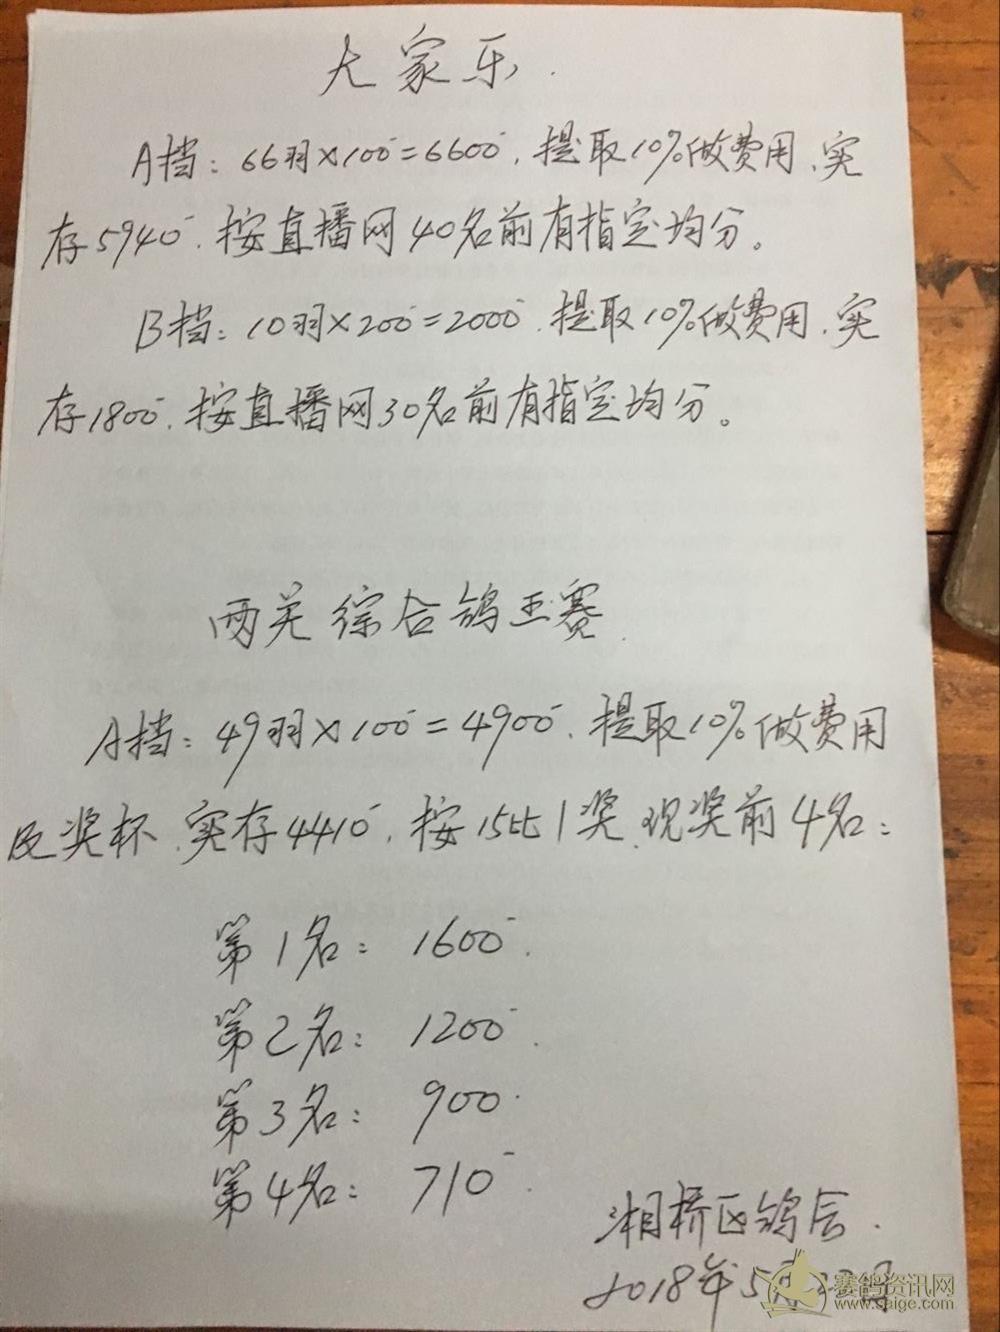 大家乐.
A挡：66羽×100=6600，提取10%做费用，实
存5940，按直播网40名前有指定均分。
B挡：10羽×200=2000，提取10%做费用，实
存1800，按直播网30名前有指定均分。
两关综合鸽王赛
A挡：49羽×100=4900，提取10%做费用
及奖杯，实存4410，按15比1奖，现奖前4名：
第1名：1600
第2名：1200
第3名：900
第4名：710
湘桥区鸽会.
2018年5月 日
赛鸽资讯网
www.saige.com